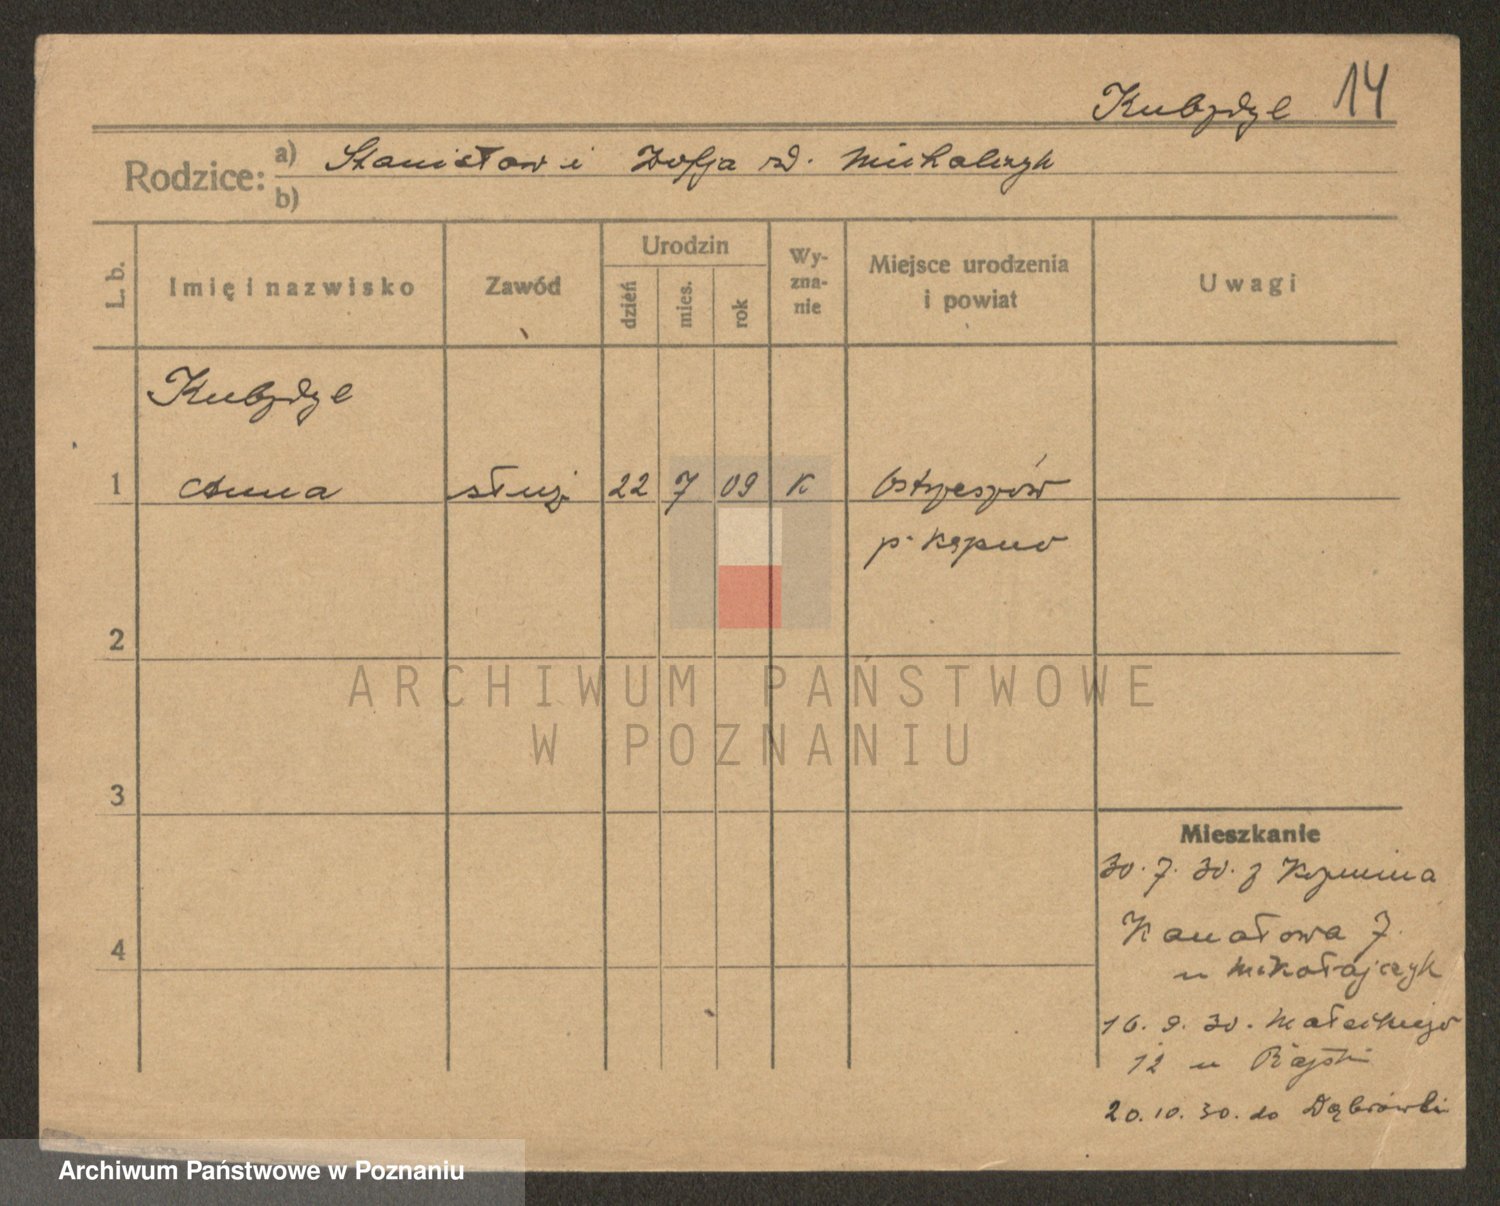 Kubzdyl 14
Rodzice:
a) Stanisław i Zofja zd. Michalczyk
b)
L. b.
Imię i nazwisko
Zawód
Urodzin
dzień
mies.
rok
Wy-
zna-
nie
Miejsce urodzenia
i powiat
Uwagi
Kubzdyl
1 Anna służ. 22 7 09 K Ostrzeszów
p. Kępno
2
3
4
Mieszkanie
30. 7. 30. z Koźmina
Kanałowa 7.
u Mikołajczyk
16. 9. 30. Małeckiego
12 u
20. 10. 30. do Dąbrówki
ARCHIWUM PAŃSTWOWE
W POZNANIU
Archiwum Państwowe w Poznaniu